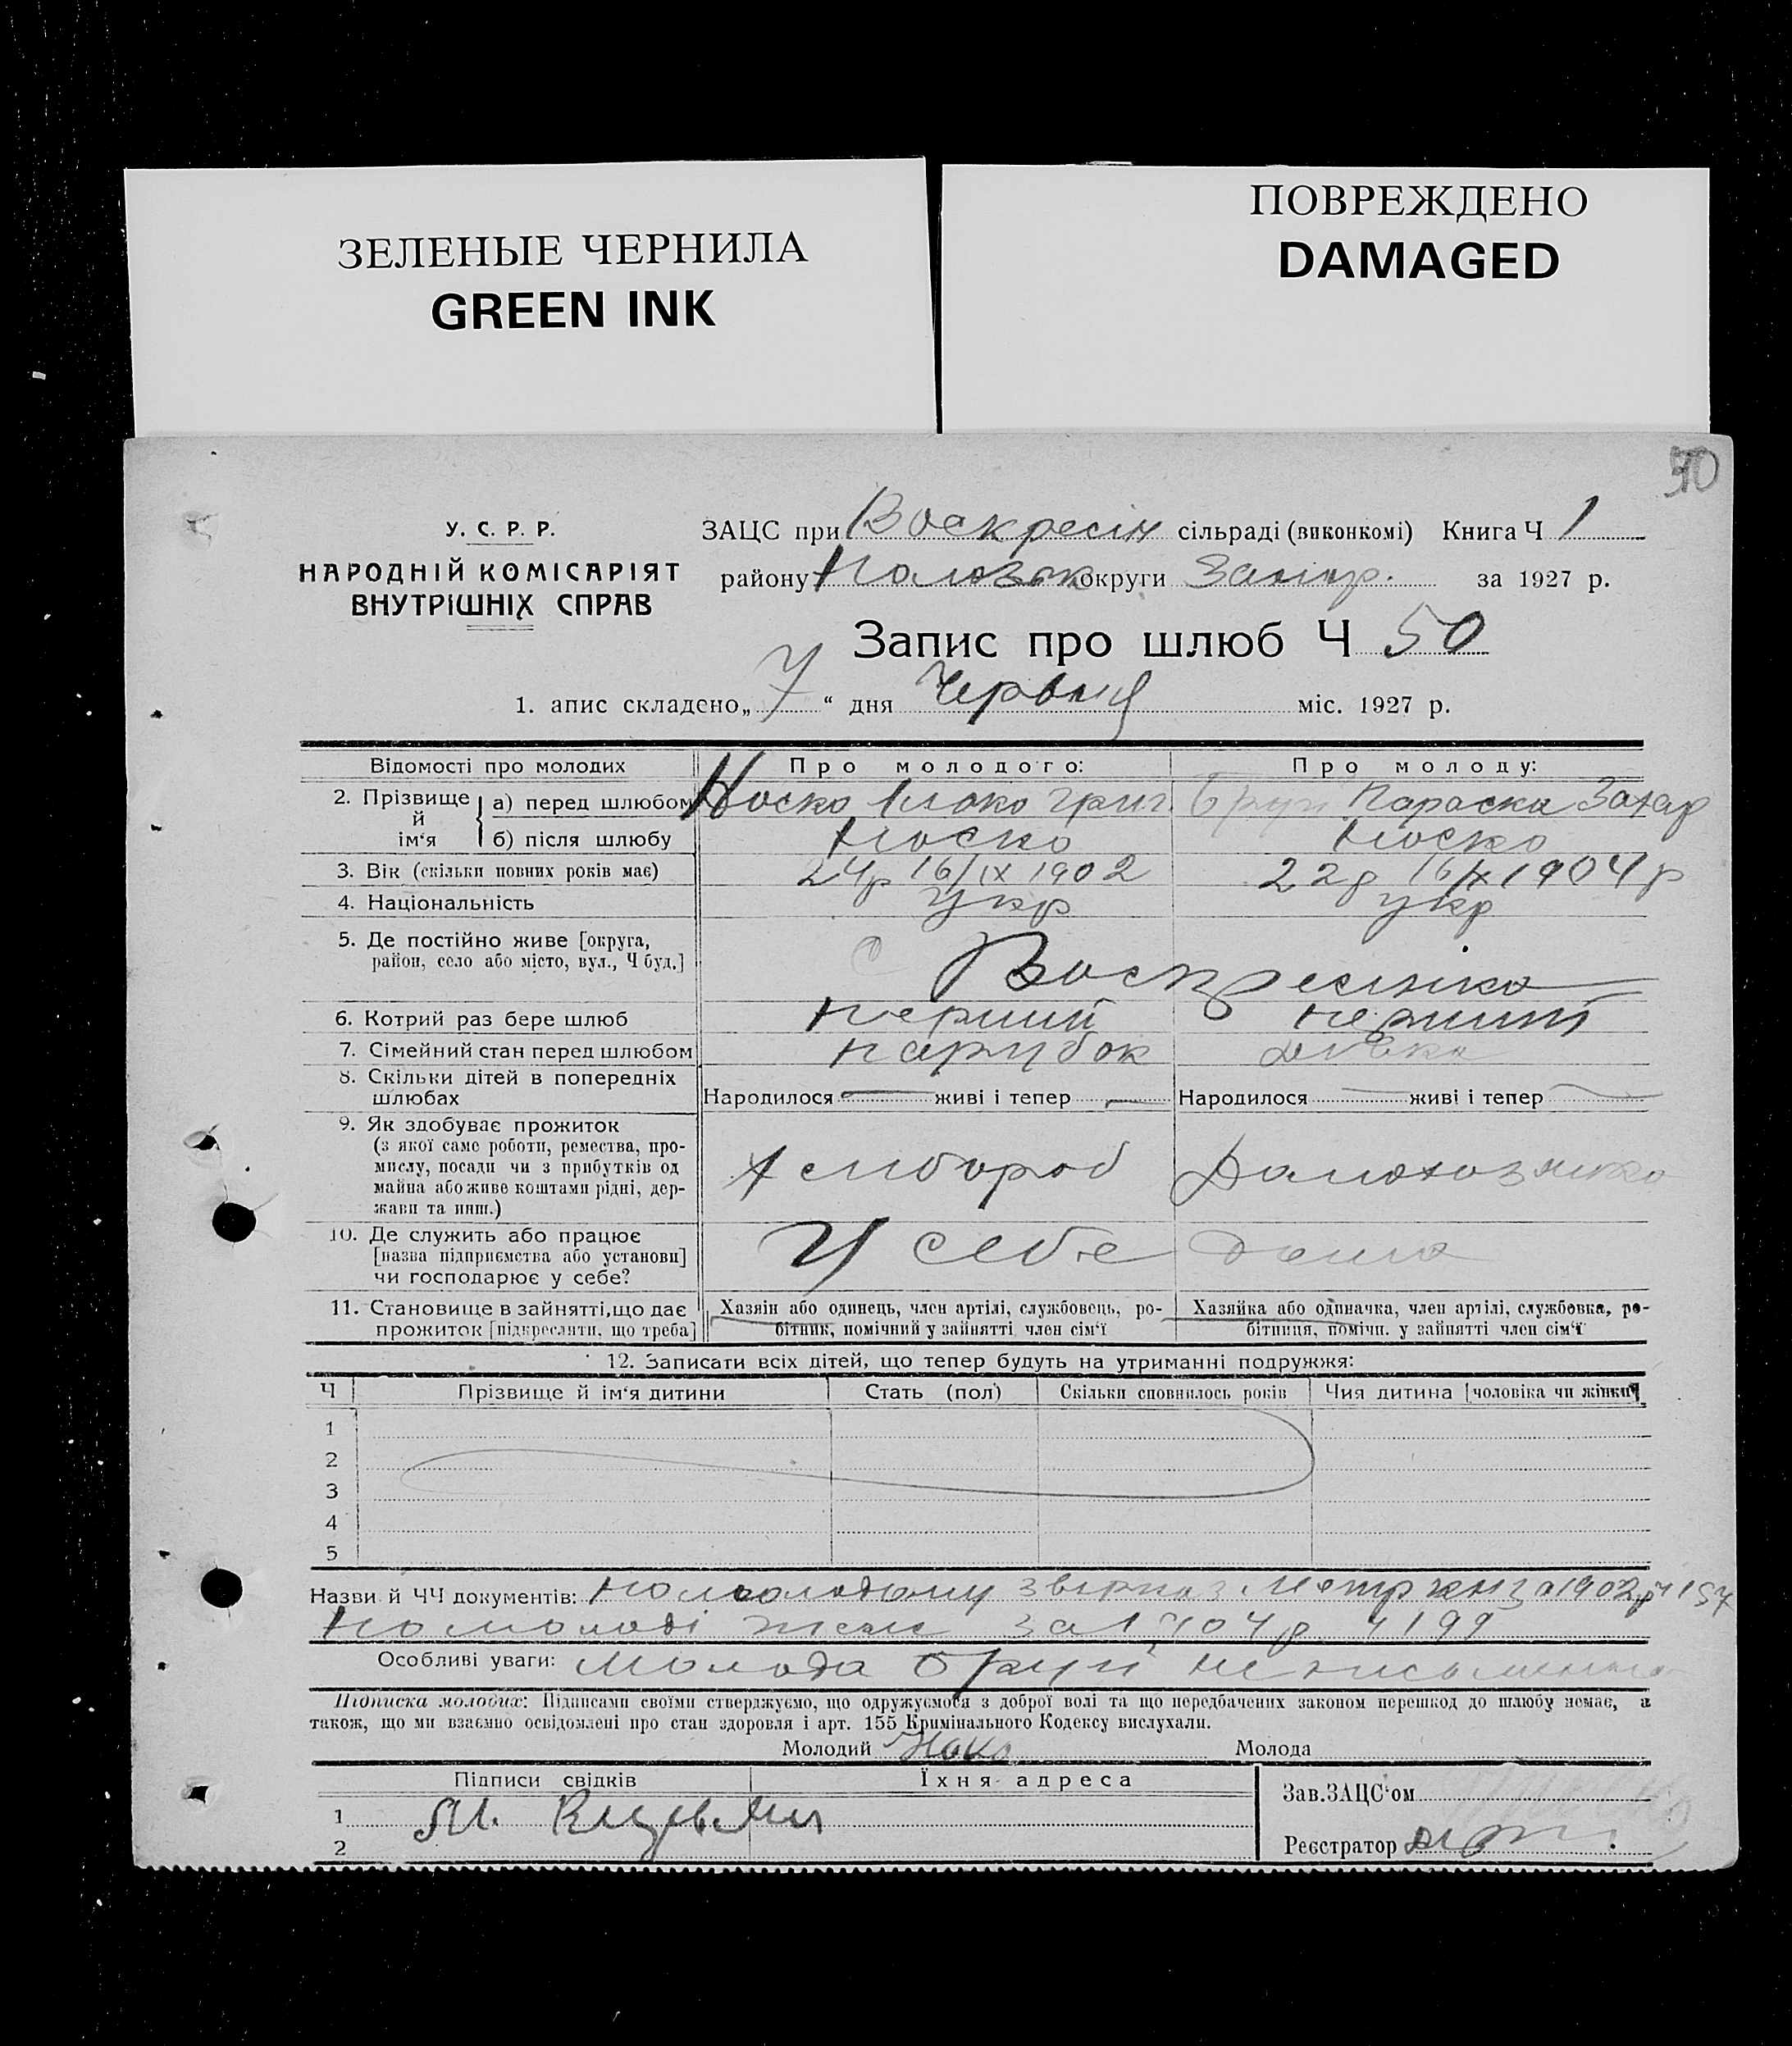 ЗЕЛЕНЫЕ ЧЕРНИЛА
GREEN INK
ПОВРЕЖДЕНО
DAMAGED
50
У. С. Р. Р.
НАРОДНІЙ КОМІСАРІЯТ
ВНУТРІШНІХ СПРАВ
ЗАЦС при Воскресін сільраді (виконкомі) Книга Ч 1
району округи Запор. за 1927 р.
Запис про шлюб Ч 50
1. апис складено „ 7 “ дня Червня міс. 1927 р.
Відомості про молодих Про молодого: Про молоду:
2. Прізвище й ім‘я а) перед шлюбом Носко Григ. Параска Захар
б) після шлюбу Носко Носко
3. Вік (скільки повних років має) 24р 16/IX 1902 22р 16/X 1904р
4. Національність Укр укр
5. Де постійно живе [округа,
район, село або місто, вул., Ч буд.] с Воскресінка
6. Котрий раз бере шлюб перший перший
7. Сімейний стан перед шлюбом парубок дівка
8. Скільки дітей в попередніх
шлюбах Народилося — живі і тепер — Народилося — живі і тепер —
9. Як здобуває прожиток
(з якої саме роботи, ремества, про-
мислу, посади чи з прибутків од
майна або живе коштами рідні, дер-
жави та инш.) Хлібороб Домохозяйка
10. Де служить або працює
[назва підприємства або установи]
чи господарює у себе? У себе дома
11. Становище в зайнятті, що дає
прожиток [підкреслити, що треба]
Хазяін або одинець, член артілі, службовець, ро-
бітник, помічний у зайнятті член сім‘ї
Хазяйка або одиначка, член артілі, службовка, ро-
бітниця, помічн. у зайнятті член сім‘ї
12. Записати всіх дітей, що тепер будуть на утриманні подружжя:
Ч Прізвище й ім‘я дитини Стать (пол) Скільки сповнилось років Чия дитина [чоловіка чи жінки]
1
2
3
4
5
Назви й ЧЧ документів: По молодому з Метр кн за 1902р ч 157
По молоді за 1904р ч 199
Особливі уваги: Молода неписьменна
Підписка молодих: Підписами своїми стверджуємо, що одружуємося з доброї волі та що передбачених законом перешкод до шлюбу немає, а
також, що ми взаємно освідомлені про стан здоровля і арт. 155 Кримінального Кодексу вислухали.
Молодий Носко Молода
Підписи свідків Їхня адреса
1
2
Зав. ЗАЦС‘ом
Реєстратор